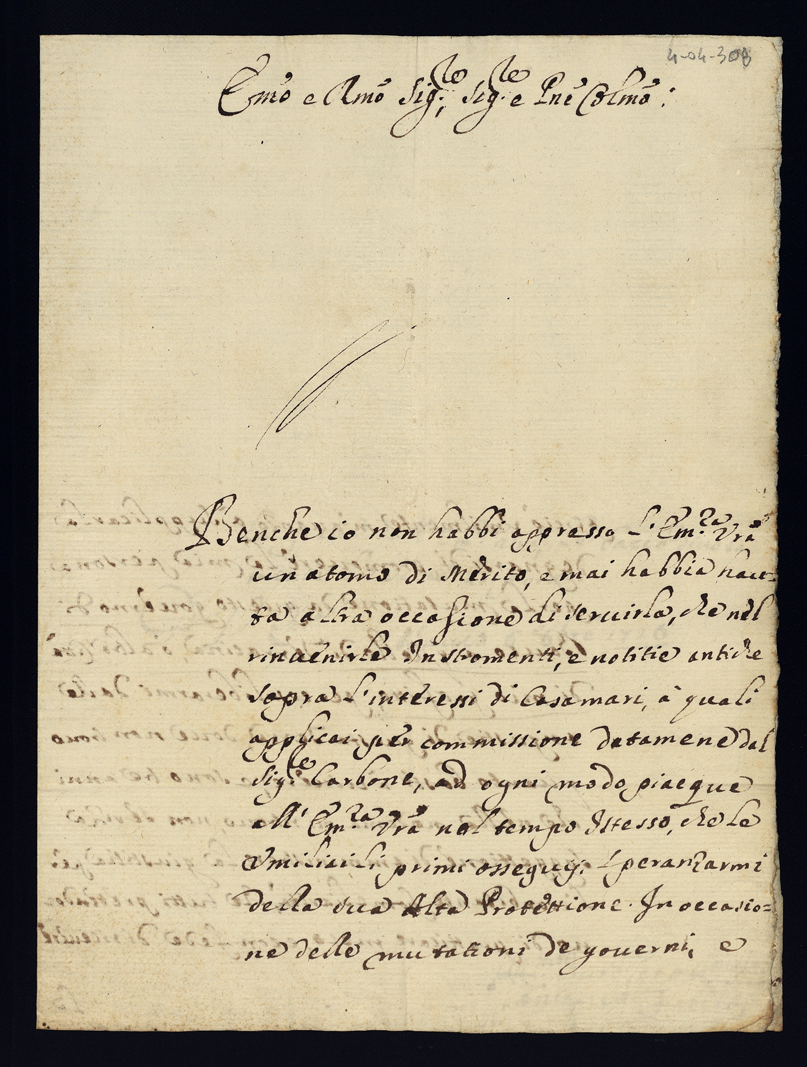 4-04-308
Em̃o e Rm̃o Sig.re, Sig.re e Pñe Colm̃o:
Benche io non habbi appresso L'Em.za Vrã
un atomo di Merito, e mai habbia hau=
ta altra occasione di seruirla, che nel
rinuenirle Instromenti, e notitie antiche
sopra l'interessi di Casamari, a' quali
applicai per commissione datamene dal
Sig.re Carbone, ad ogni modo piacque
all' Em.za Vrã nel tempo Istesso, che le
Vmiliai li primi ossequij: Speranzarmi
della sua Alta Protettione. In occasio=
ne delle mutationi de gouerni, e